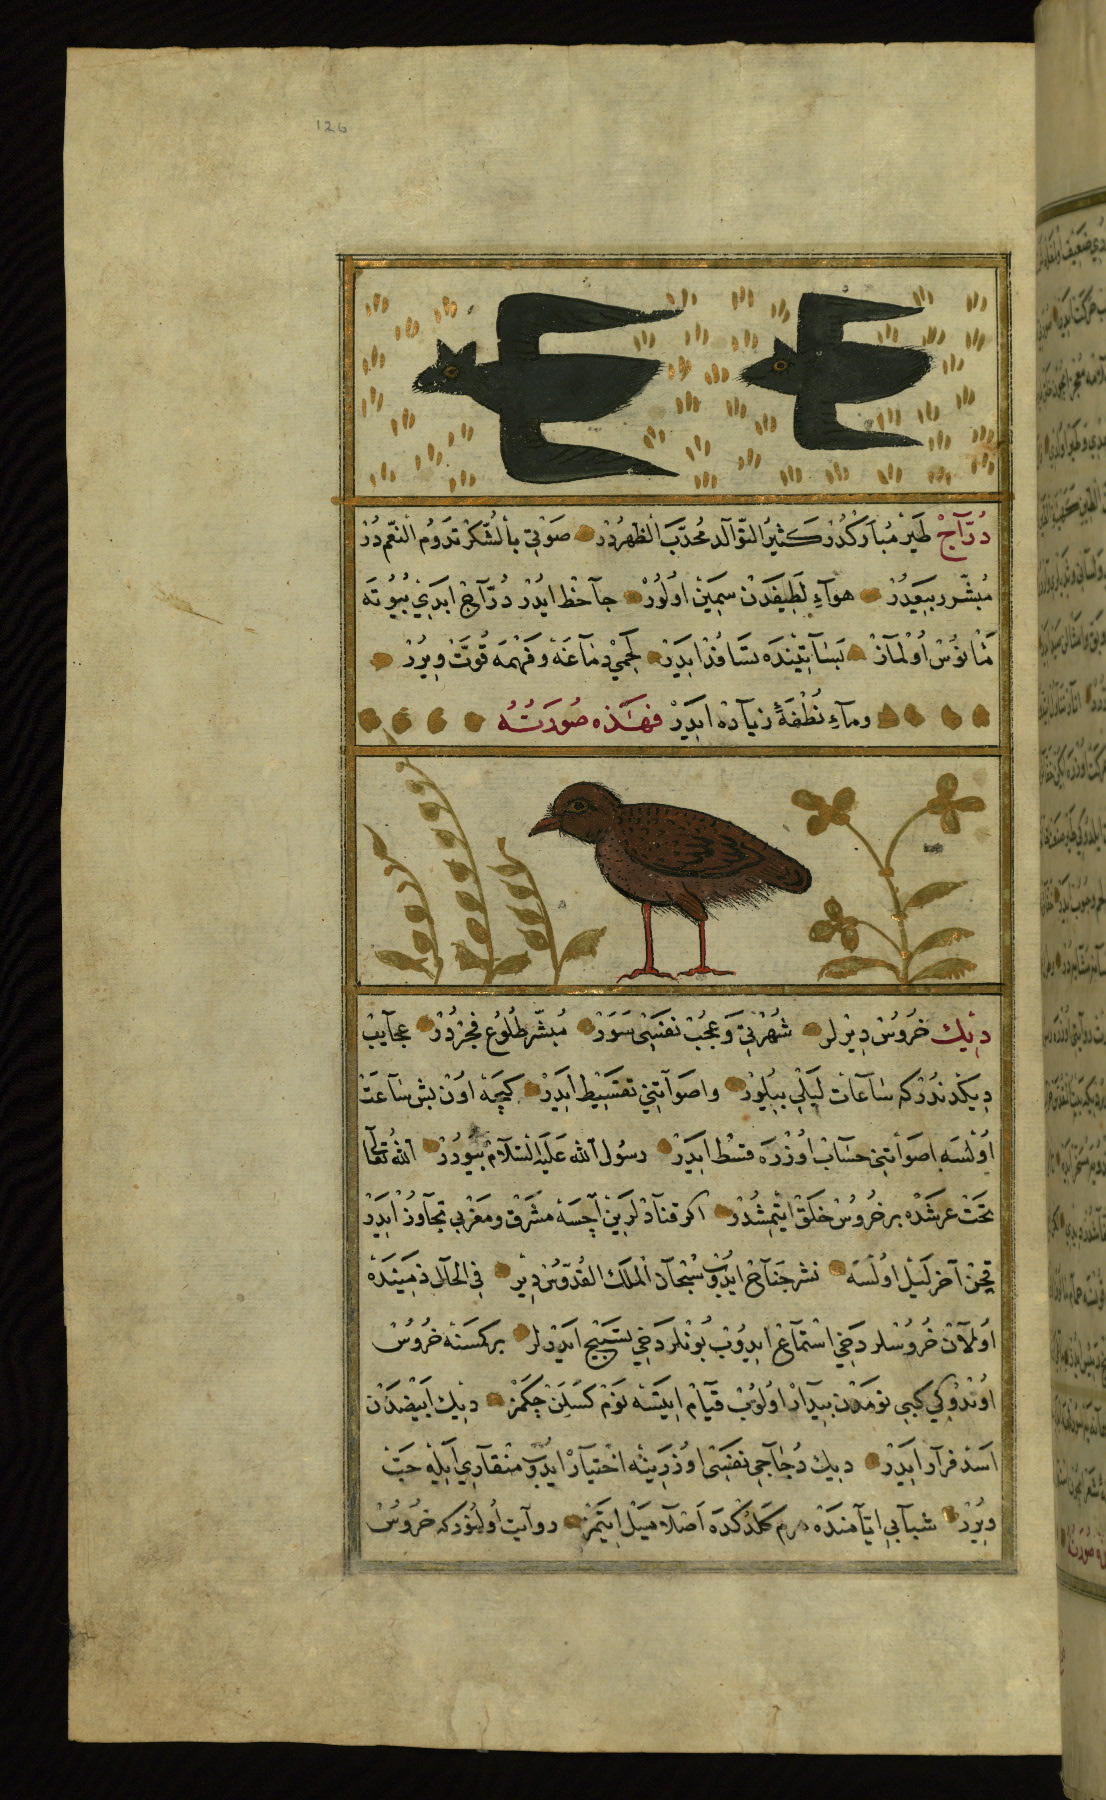 126
دُرَّآجْ طَيرْ مُبَارَكْدُرْ كَثيرُ التَّوَالُد مُحَدَّبَ الظَّهْرْدُرْ صَوْتِى بِالشُّكْرِ تَدُومُ النِّعَم دُرْ
مُبَشِّر رَبيعدُرْ هوآءِ لَطِيفَدَنْ سَمِينْ اوُلُورْ جآحظ ايدُرْ دُرَّآجْ ابَدِى بُيُوتَه
مَأنوُسْ اوُلْمَازْ بَسَاتِينْدَه تسَافُدْ ايدَرْ لَحمِى دِمَاغَه وَفَهْمَه قُوَّتْ ويرُرْ
ومآءِ نُطْفَهءِ زِيَادَه ايدَرْ فهَذِه صُورَتُهُ
دِيكْ خُرُوسْ دِيرْلر شُهْرَتِى وَعُجُبْ نفسَنِى سَوَرْ مُبَشِّر طُلُوعِ فجرْدُرْ عجآيبْ
دِيكْدَنْدُرْكه سَاعَات لَيَلِى بيلُورْ واصوَاتِنِى تقسِيط ايدَرْ كيجَه اوُنْ بَش سَاعَتْ
اوُلْسَه اصوَاتِنِى حِسَابْ اوُزْرَه قسْط ايدَرْ رسُول الله عَلَيهِ السَّلَام بيوُرُرْ الله تعَالَى
تَحْتَ عرشدَه بر خُرُوسْ خَلْق ايتْمِشْدُرْ اكر قنآدْلَرِينْ آچسَه مَشْرِق ومَغْربِى تجَاوُزْ ايدَرْ
قچن آخر لَيْل اوُلسَه نشر جَنَاح ايدُوبْ سُبْحَانَ المَلِكِ القُدُّوس دِيرْ فِى الحَال زمِينْدَه
اوُلَانْ خُرُوسْلر دَخِى استِمَاعْ ايدُوبْ بُونلَر دَخِى تسْبِيحْ ايدَرْلَر بر كمسَنَه خُرُوسْ
اوُتدُوكى كِبى نومدَنْ بِيدَارْ اوُلُوبْ قيَامْ ايتسَه نَوْم كَسَلِنْ چكمَز دِيك ابيَضدَنْ
اسَدْ فرَارْ ايدَرْ دِيك دُجَاجِى نفسَنِى اوُزَرِينَه اختيَارْ ايدُوبْ منقارِى ايلَه حَبّ
ويرُرْ شبابِى ايَّامنده هرم كلدكده اصلَا مَيْل ايتمَز روَايت اوُلِنُوركه خُرُوسْ